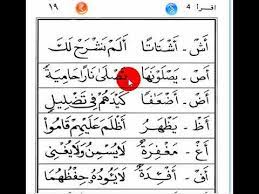 اقرأ 4 ١٩
أَشْ - أَشْتَاتًا أَلَمْ نَشْرَحْ لَكَ
أَصْ - يَصْلَوْنَهَا تَصْلَىٰ نَارًا حَامِيَةً
أَضْ - أَضْعَفًا كَيْدَهُمْ فِي تَضْلِيلٍ
أَظْ - يَظْهَرُ أَظْلَمَ عَلَيْهِمْ قَامُوا
أَغْ - مَغْفِرَةٌ لَا يُسْمِنُ وَلَا يُغْنِي
أَفْ - أَفْئِدَةً لَا يَئُودُهُ حِفْظُهُمَا